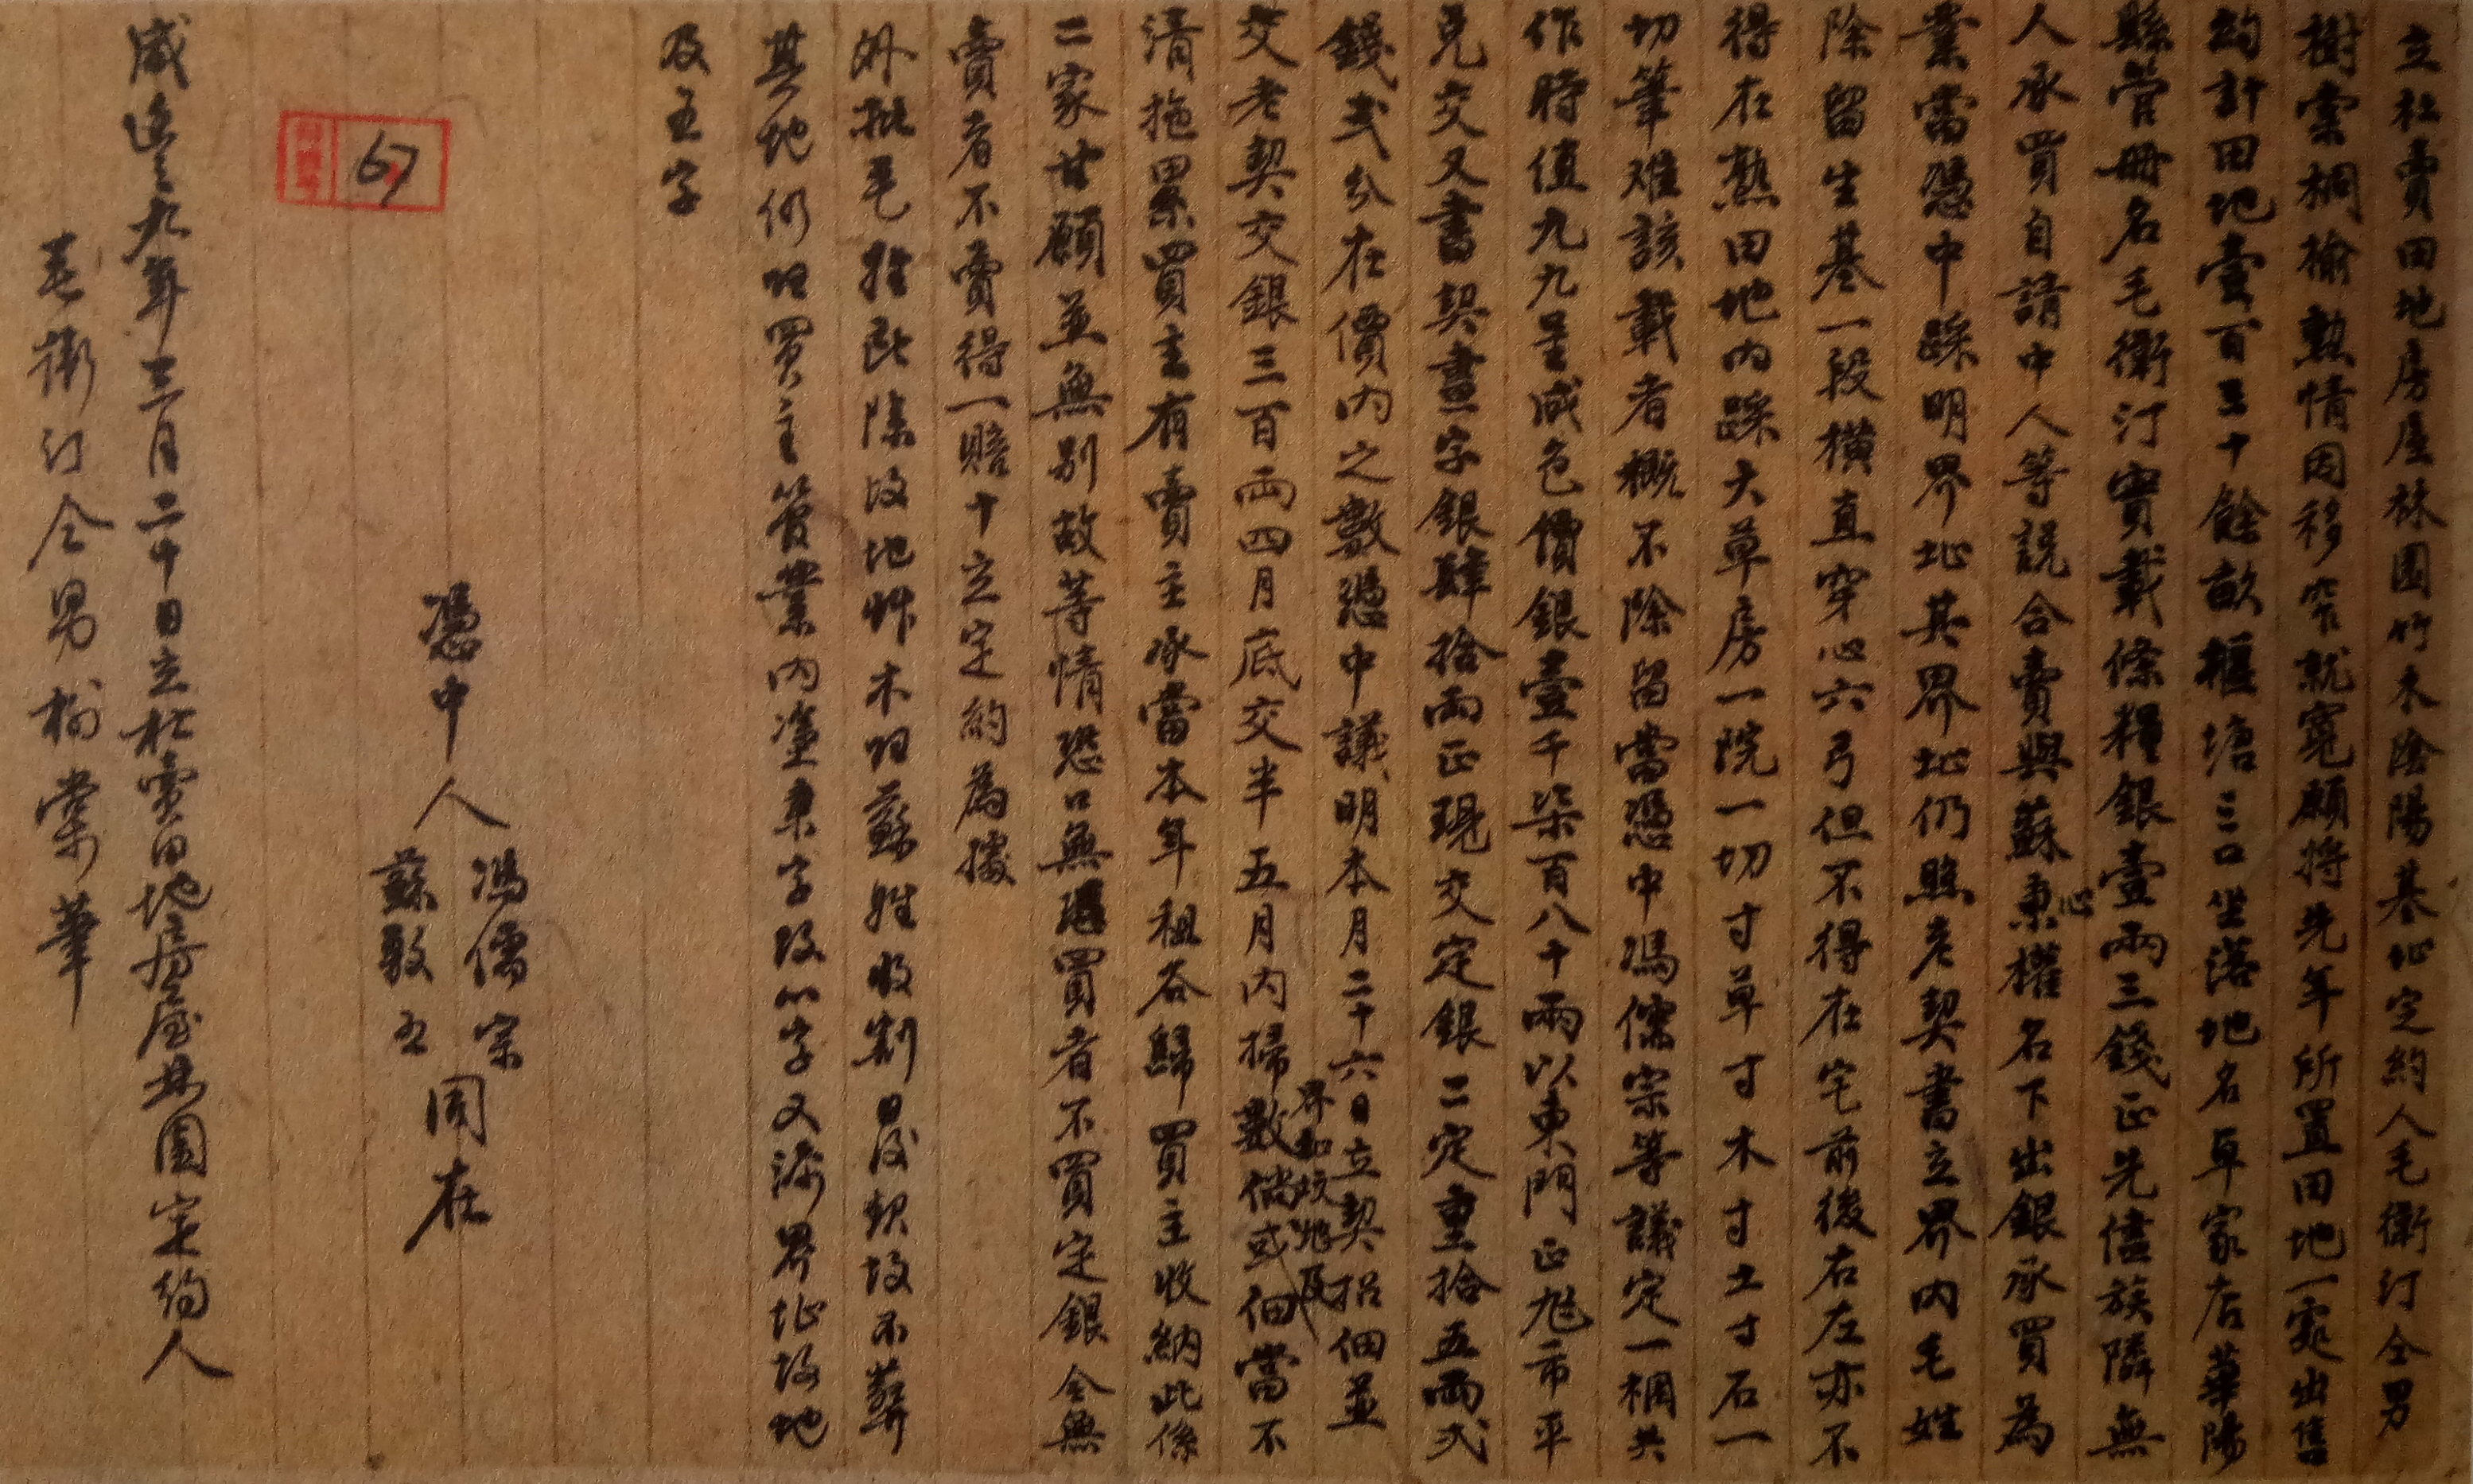 立杜賣田地房屋林園竹木陰陽基址定約人毛衛汀仝男
樹棠桐榆勲情因移窄就寬願將先年所置田地一處出售
約計田地壹百三十餘畝堰塘三口坐落地名草家店華陽
縣管冊名毛衛汀實載條糧銀壹兩三錢正先儘族隣無
人承買自請中人等説合賣與蘇秉心權名下出銀承買為
業當憑中踩明界址其界址仍照老契書立界內毛姓
除留生基一段橫直穿心六弓但不得在宅前後右左亦不
得在熟田地內踩大草房一院一切寸草寸木寸土寸石一
切筆难該載者概不除留當憑中馮儒宗等議定一梱共
作時值九九呈成色價銀壹千柒百八十兩以東門正旭市平
兌交又書契畫字銀肆拾兩正現交定銀二定重拾五兩弍
錢弍分在價內之數憑中議明本月二十六日立契招佃並
界和坟地及
交老契交銀三百両四月底交半五月內掃數倘或佃當不
清拖累買主有賣主承當本年租谷歸買主收納此係
二家甘願並無別故等情恐口無憑買者不買定銀全無
賣者不賣得一賠十立定約為據
外批毛姓除坟地竹木土蘇姓收割日後坟不葬
其地仍坦買主管業內塗秉字改心字又添界址坟地
及五字
67
憑中人
馮儒宗
蘇敦五
同在
咸豊九年三月二十日立杜賣田地房屋林園定約人
毛衛汀仝男樹棠筆